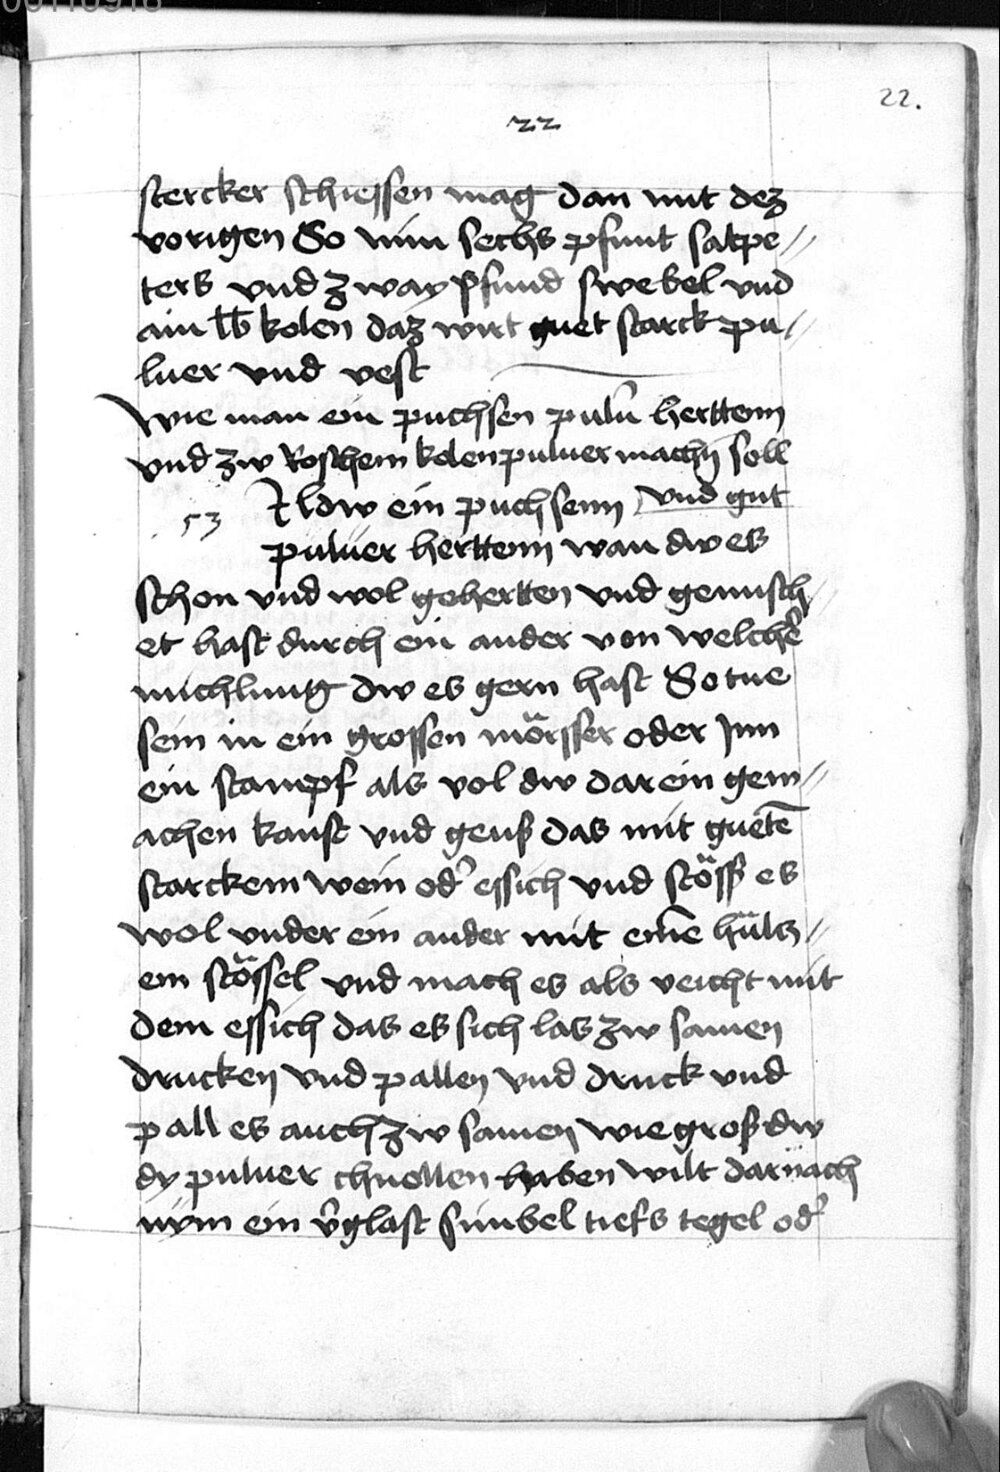 22.
22
stercker schiessen mag dan mit dez
vorigen So nim sechs pfunt salpe//
ters vnd zway pfund swebel vnd
ain lb kolen daz wirt guet starck pu//
luer vnd vest
Wie man ein puchsen pulu̅ herttenn
vnd zw Roschem kolenpuluer machn̄ soll
Ildw ein puchsenn vnd gut
53
puluer herttenn wan dw es
schon vnd wol gehertten vnd gemisch//
et hast durch ein ander von welcher̄
michlung dw es gern hast So tue
sein in ein grossen mörsser oder Jnn
ein stampf als vol dw dar ein gem//
achen kanst vnd geuß das mit guetē
starckem wein od' essich vnd stöss es
wol vnder ein ander mit eine̅ hültz//
em stössel vnd mach es als veicht mit
dem essich das es sich las zw samen
drucken vnd pallen vnd druck vnd
pall es auch zw samen wie groß dw
dy puluer chnollen haben wilt dar nach
nym ein v̄glast sinbel tiefs tegel od'